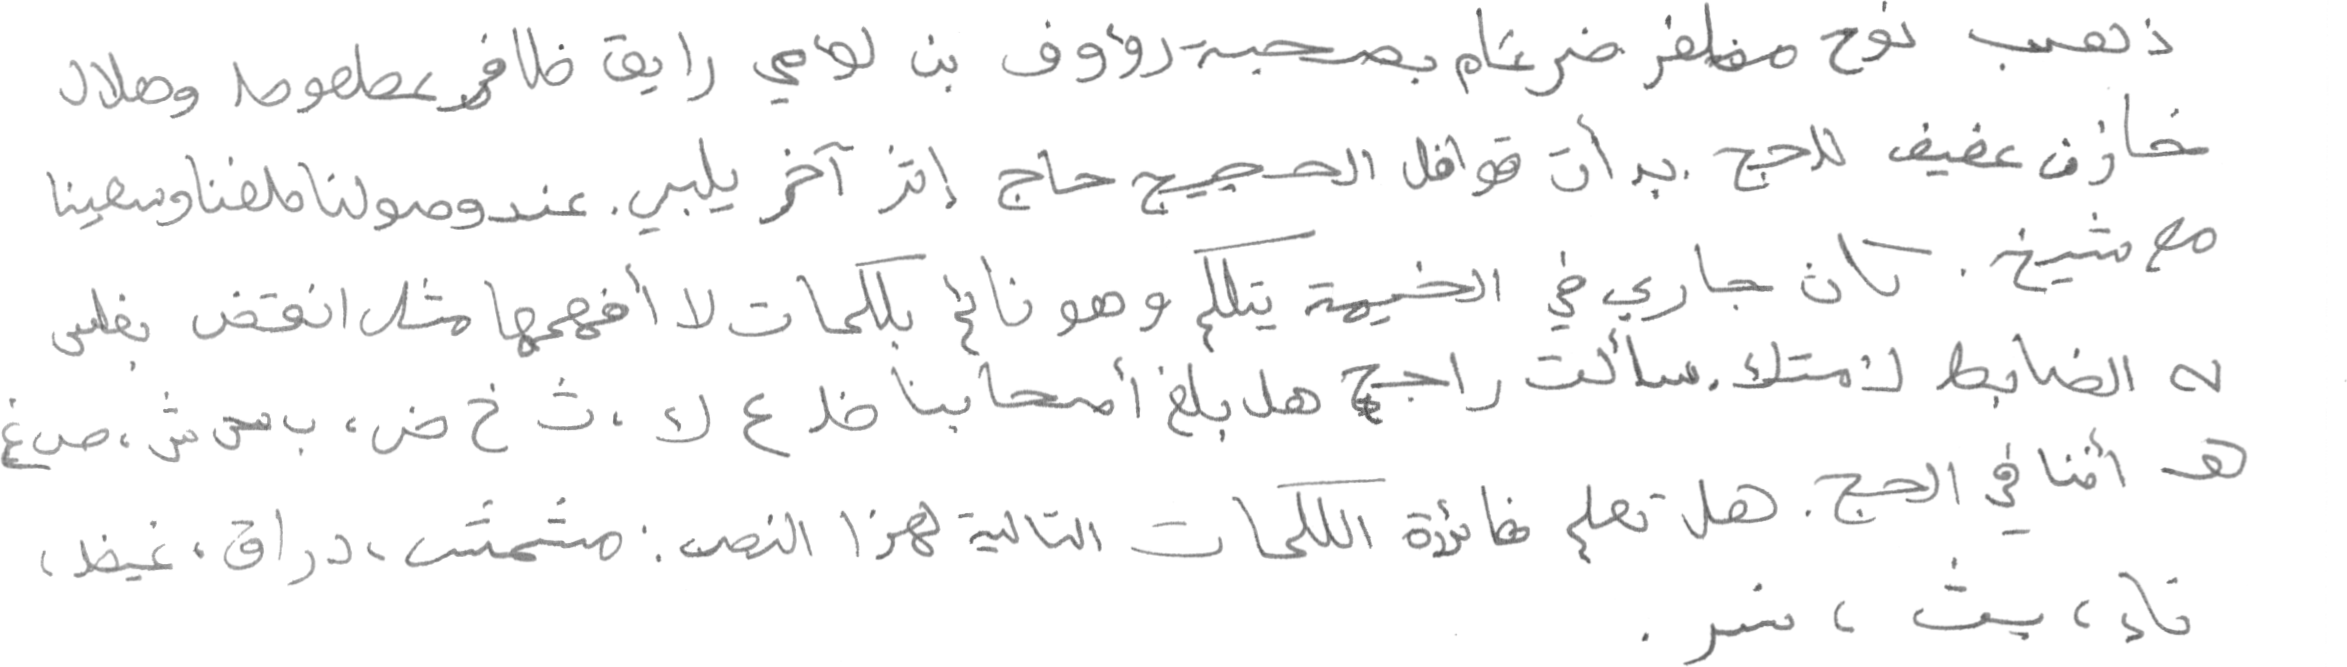 ذهب نوح مظفر ضرغام بصحبة رؤوف بن لؤمي رايق ظافر عطعوط وهلال
خازن عفيف للحج. بدأت قوافل الحجيج حاج إثر آخر يلبي. عند وصولنا طفنا وسعينا
مع شيخ. كان جاري في الخيمة يتكلم وهو نائم بكلمات لا أفهمها مثل انقض بغلس
له الضابط لذمتك. سألت راجح هل بلغ أصحابنا خد ع ك، ث خ ض، ب س ش، ص غ
هـ اثنا في الحج. هل تعلم فائدة الكلمات التالية لهذا النص: مشمش، دراق، غيظ،
تاء، بث، نسر.